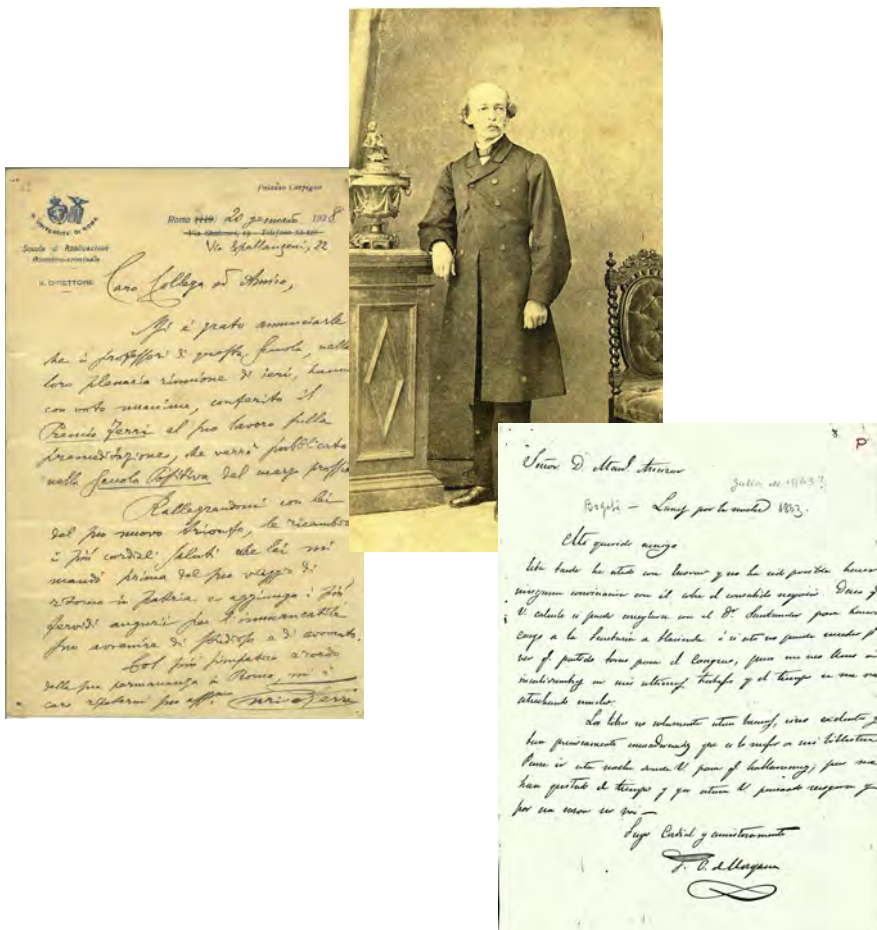 Palazzo Carpegna
R. UNIVERSITÀ DI ROMA
Scuola di Applicazione
Giuridico-criminale
IL DIRETTORE
Roma 20 gennaio 1928
Via Spallanzani, 22
Caro Collega ed Amico,
Mi è grato annunciarle
che i professori di questa Scuola, nella
loro plenaria riunione di ieri, hanno
con voto unanime, conferito il
Premio Ferri al suo lavoro sulla
premeditazione, che verrà pubblicato
nella Scuola Positiva del marzo pross
Rallegrandomi con lei
del suo nuovo trionfo, le ricambio
i più cordiali saluti che lei mi
mandò prima del suo viaggio di
ritorno in Patria e aggiungo i più
fervidi auguri per l'immancabile
suo avvenire di studioso e di avvocato.
Col più simpatico ricordo
della sua permanenza a Roma, mi è
caro ripetermi suo aff.
Enrico Ferri
8
P
Señor D. Manl. Ancizar
Julio de 1863?
Bogotá — Lunes por la noche 1863.
Mi querido amigo
Esta tarde he estado con y no ha sido posible
con el sobre el consabido negocio.
V. calcula si puede con el Dr. para
cargo a la Secretaria de Hacienda o si esto no puede
ver que partido tomo para el Congreso, pues
en mis trabajos y el tiempo se me va
estrechando mucho.
Los libros no solamente estan buenos, sino excelentes y
tan que es lo mejor de mi biblioteca
Pense ir esta noche donde V. para que hablaramos; pero
han quitado el tiempo y
por esa razon no voi —
Suyo Cordial y amistosamente
T. C. de Mosquera